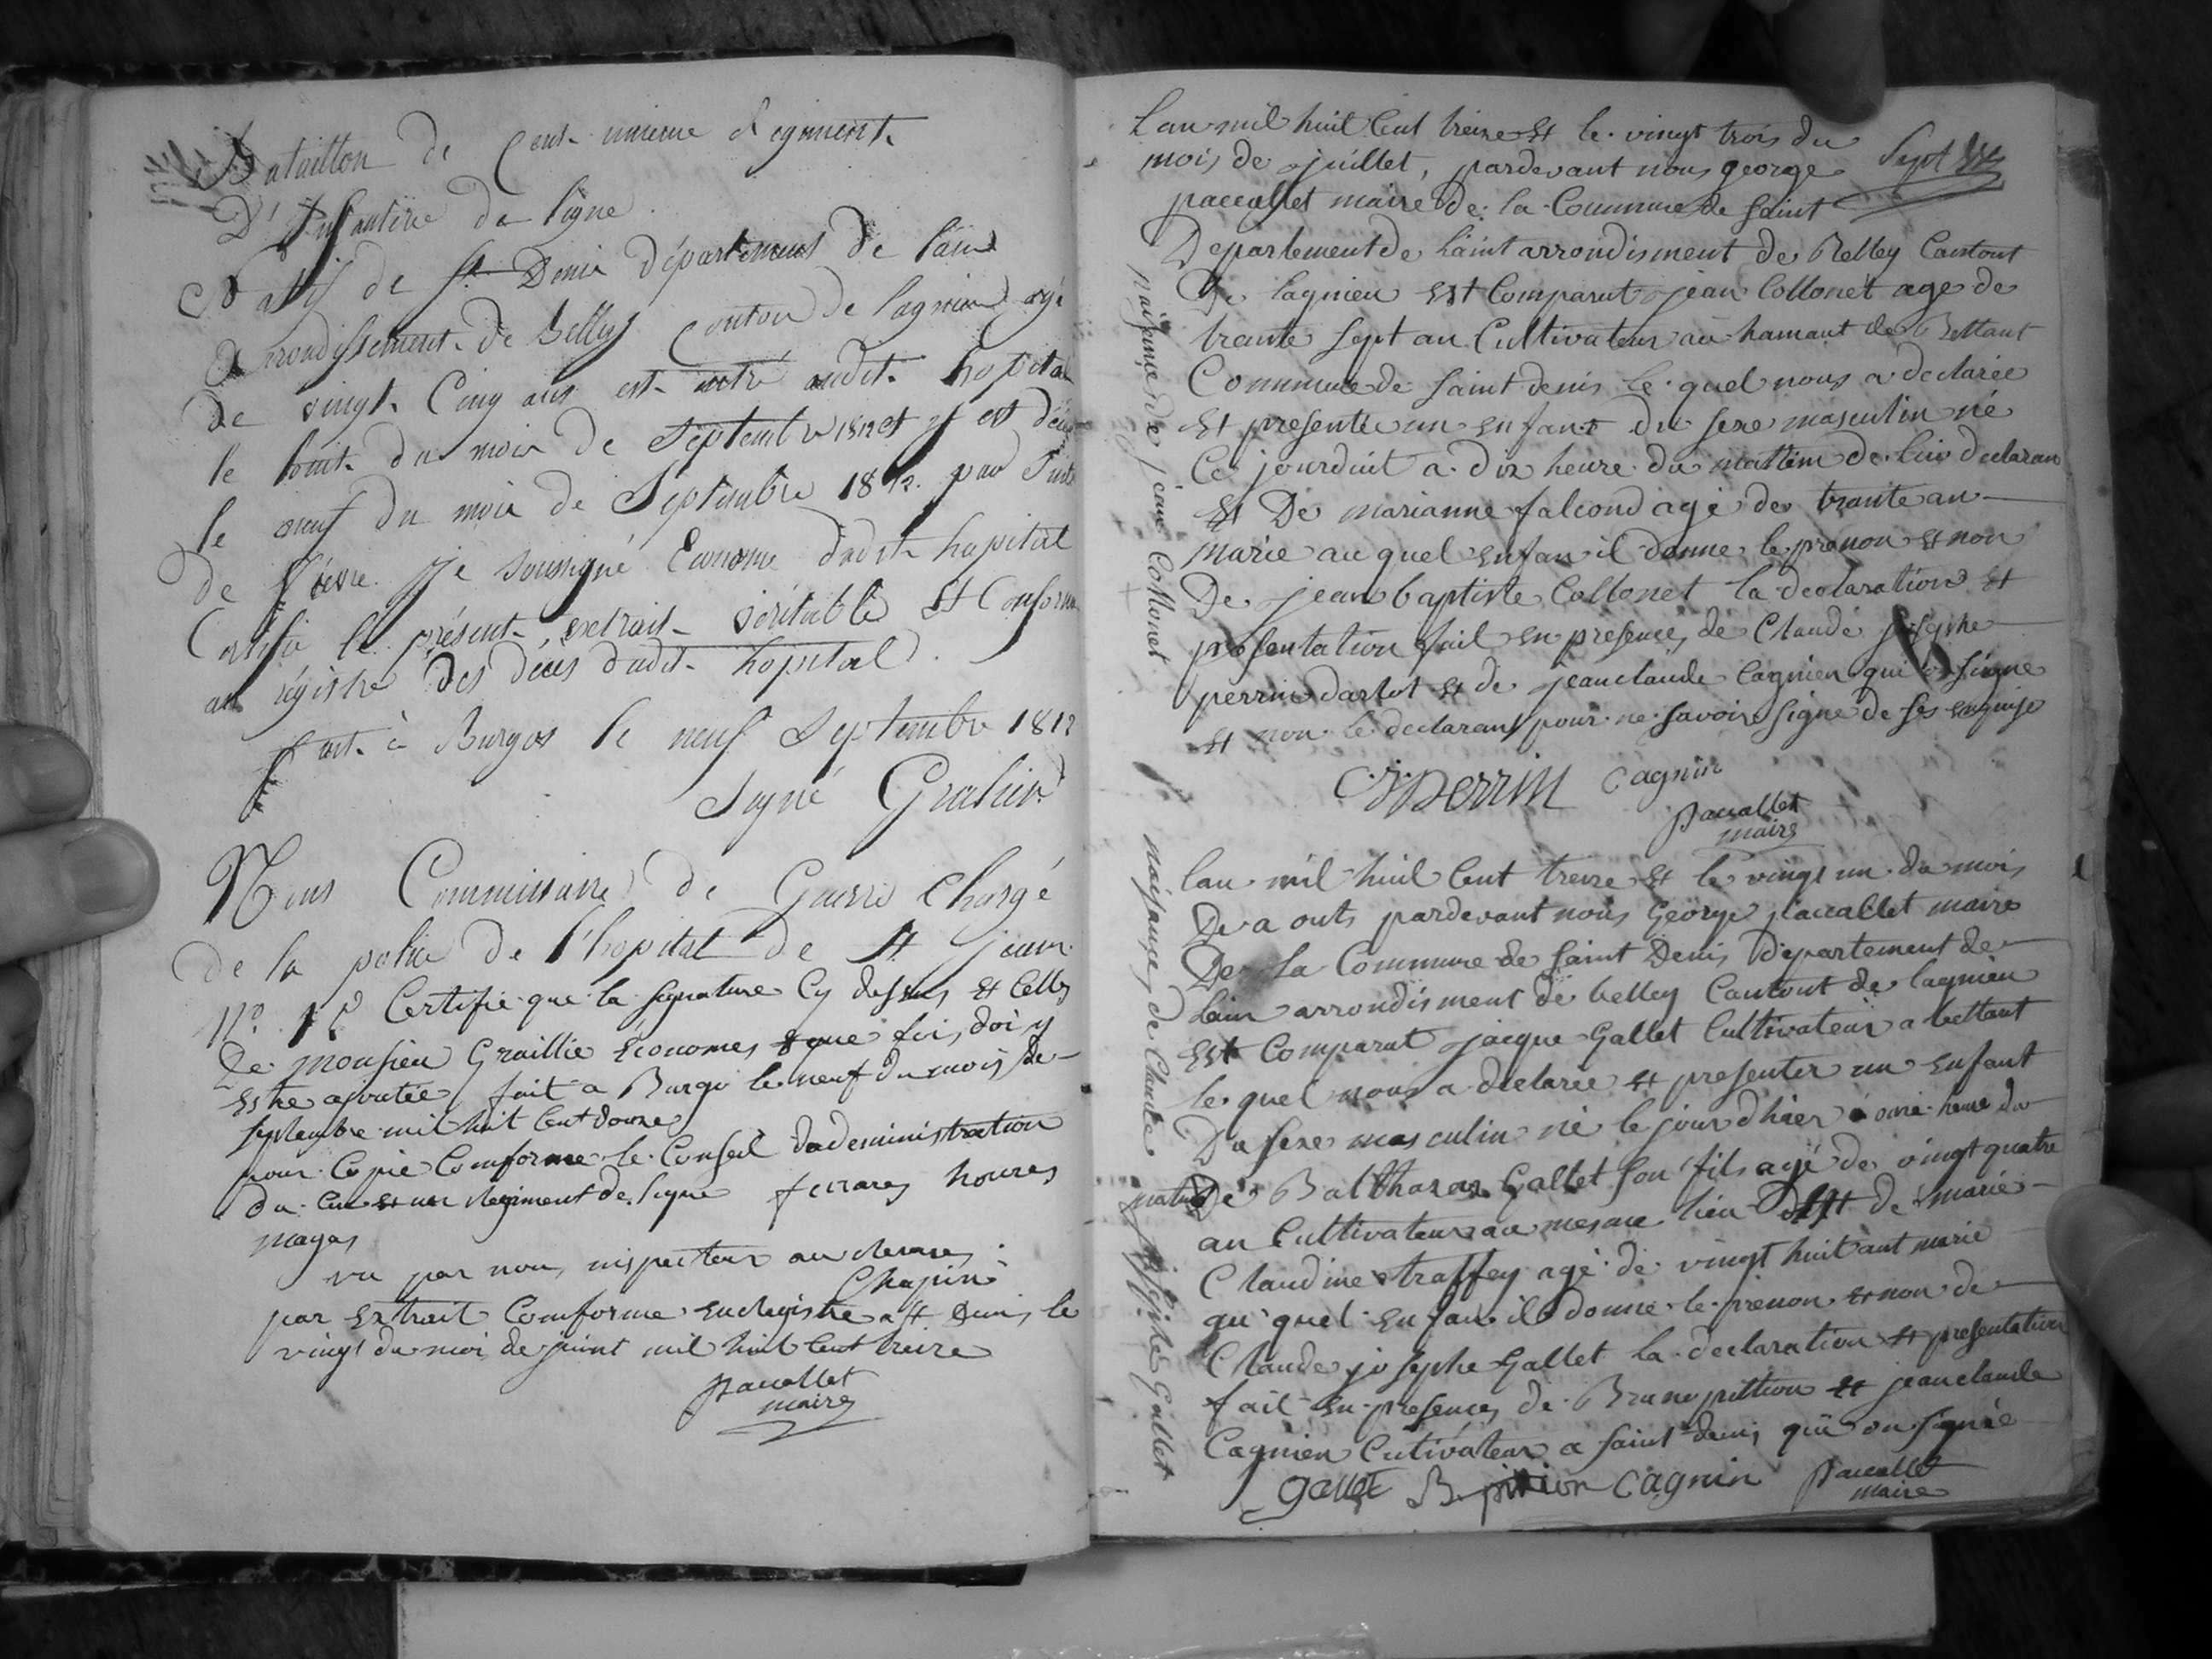 Bataillon de Cent unieme Regiment
D'Infanterie de ligne.
Natif de St Denis département de l'ain
arrondissement de Belley Conton de lagnieu agé
de vingt Cinq ans est entré audit hopital
le huit du mois de Septembre 1812 et y est décé
le neuf du mois de Septembre 1812 par Suite
de fièvre. Je soussigné Econome dudit hopital
Certifie le présent extrait véritable et Conforme
au régistre des décès dudit hopital.
fait à Burgos le neuf Septembre 1812
Signé
Nous Commissaire de Guerre chargé
de la police de l'hopital de St jean
N° 1er Certifie que la signature Cy dessus et Celle
De monsieu Graillie économes que fois doi y
estre ajoutée fait a Burgo le neuf du mois de
septembre mil huit Cent douze
pour Copie Comforme le Conseil dadeministration
du Cent et un Regiment de ligne
vu par nou inspecteur au
Chapin
par extrait Comforme enregistre a st Denis le
vingt du moi de juint mil huit Cent treize
paccallet
maire
Lan mil huit Cent treize et le vingt trois du
mois de juillet, pardevant nous george
paccallet maire de la Commune de saint
Departement de Laint arrondisment de Belley Cantont
De lagnieu est Comparut jean Collonet age de
trante sept an Cultivateur au hamaut de Bettant
Commune de saint denis le quel nous a declarée
et presente un enfant du sexe masculin né
Ce jourduit a dix heure du mattim de lui declarant
et De marianne falcond agé de trante an
marie au quel enfan il donne le prenon et non
De jean baptiste Collonet la declaration et
presentation fait en presence de Claude josephe
perrin dartot et de jean claude Cagnien qui o signe
et non le declarant pour ne savoir signe de ses enquise
naissance de jean Collonet
perrin Cagnin
paccallet
maire
Lan mil huit Cent treize et le vingt un du mois
De a outs pardevant nous George paccallet maire
De la Commune de saint Denis Departement de
Lain arrondisment de belley Cantont de lagnieu
est Comparut jacque Gallet Cultivateur a bettant
le quel nous a declarée et presenter un enfant
Du sexe masculin né le jour dhier a onze heure du
matin De Balthazar Gallet son fils agé de vingt quatre
an Cultivateur au mesme lieu et de marie
Claudine traffey agé de vingt huit ant marié
qu quel enfan il donne le prenon et non de
Claude josephe Gallet la declaration et presentation
fait en presence de Brune pittion et jean claude
Cagnien Cutivateur a saint denis qui on signée
naissance de Claude josephe Gallet
gallet B pittion Cagnin paccallet
maire